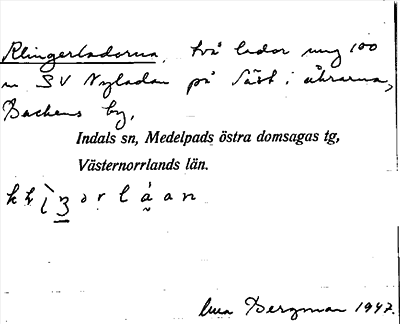 Klingerladorna, två lador ung 100
m SV Nyladan på Näst i åkrarna,
Backens by,
Indals sn, Medelpads östra domsagas tg,
Västernorrlands län.
Bergman 1947.